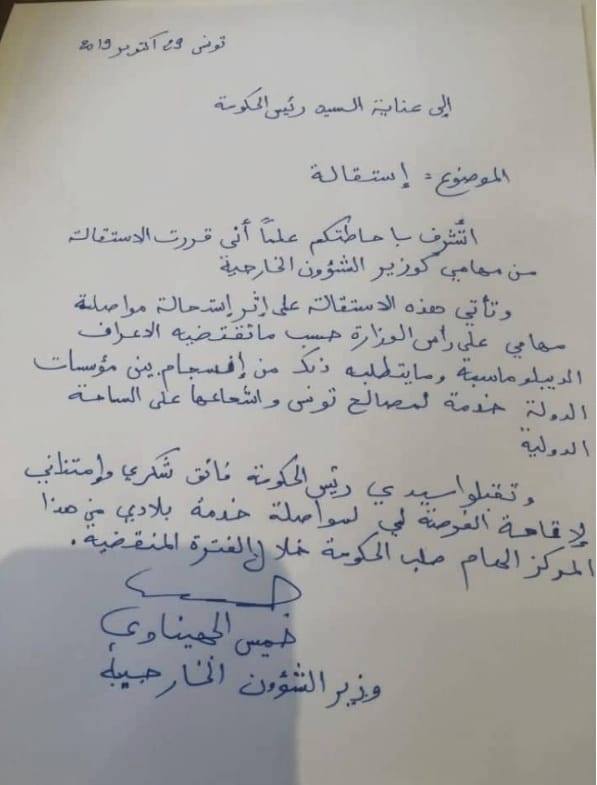 تونس 29 أكتوبر 2019
إلى عناية السيد رئيس الحكومة
الموضوع: إستقالة
أتشرف باحاطتكم علمًا أني قررت الاستقالة
من مهامي كوزير الشؤون الخارجية
وتأتي هذه الاستقالة على إثر إستحالة مواصلة
مهامي على رأس الوزارة حسب ما تقتضيه الاعراف
الديبلوماسية وما يتطلبه ذلك من إنسجام بين مؤسسات
الدولة خدمة لمصالح تونس واشعاعها على الساحة
الدولية
وتقبلوا سيدي رئيس الحكومة فائق شكري وإمتناني
لإتاحة الفرصة لي لمواصلة خدمة بلادي من هذا
المركز الهام صلب الحكومة خلال الفترة المنقضية.
خميس الجهيناوي
وزير الشؤون الخارجية